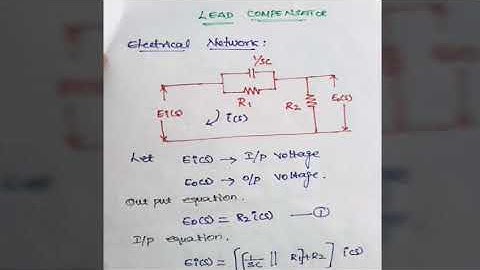 LEAD COMPENSATOR
Electrical Network:
1/SC
R1
Ei(s)
i(s)
R2
Eo(s)
Let Ei(s) → I/p voltage
Eo(s) → o/p voltage.
Out put equation.
Eo(s) = R2 i(s) — ①
I/p equation.
Ei(s) = [[1/SC || R1] + R2] i(s)